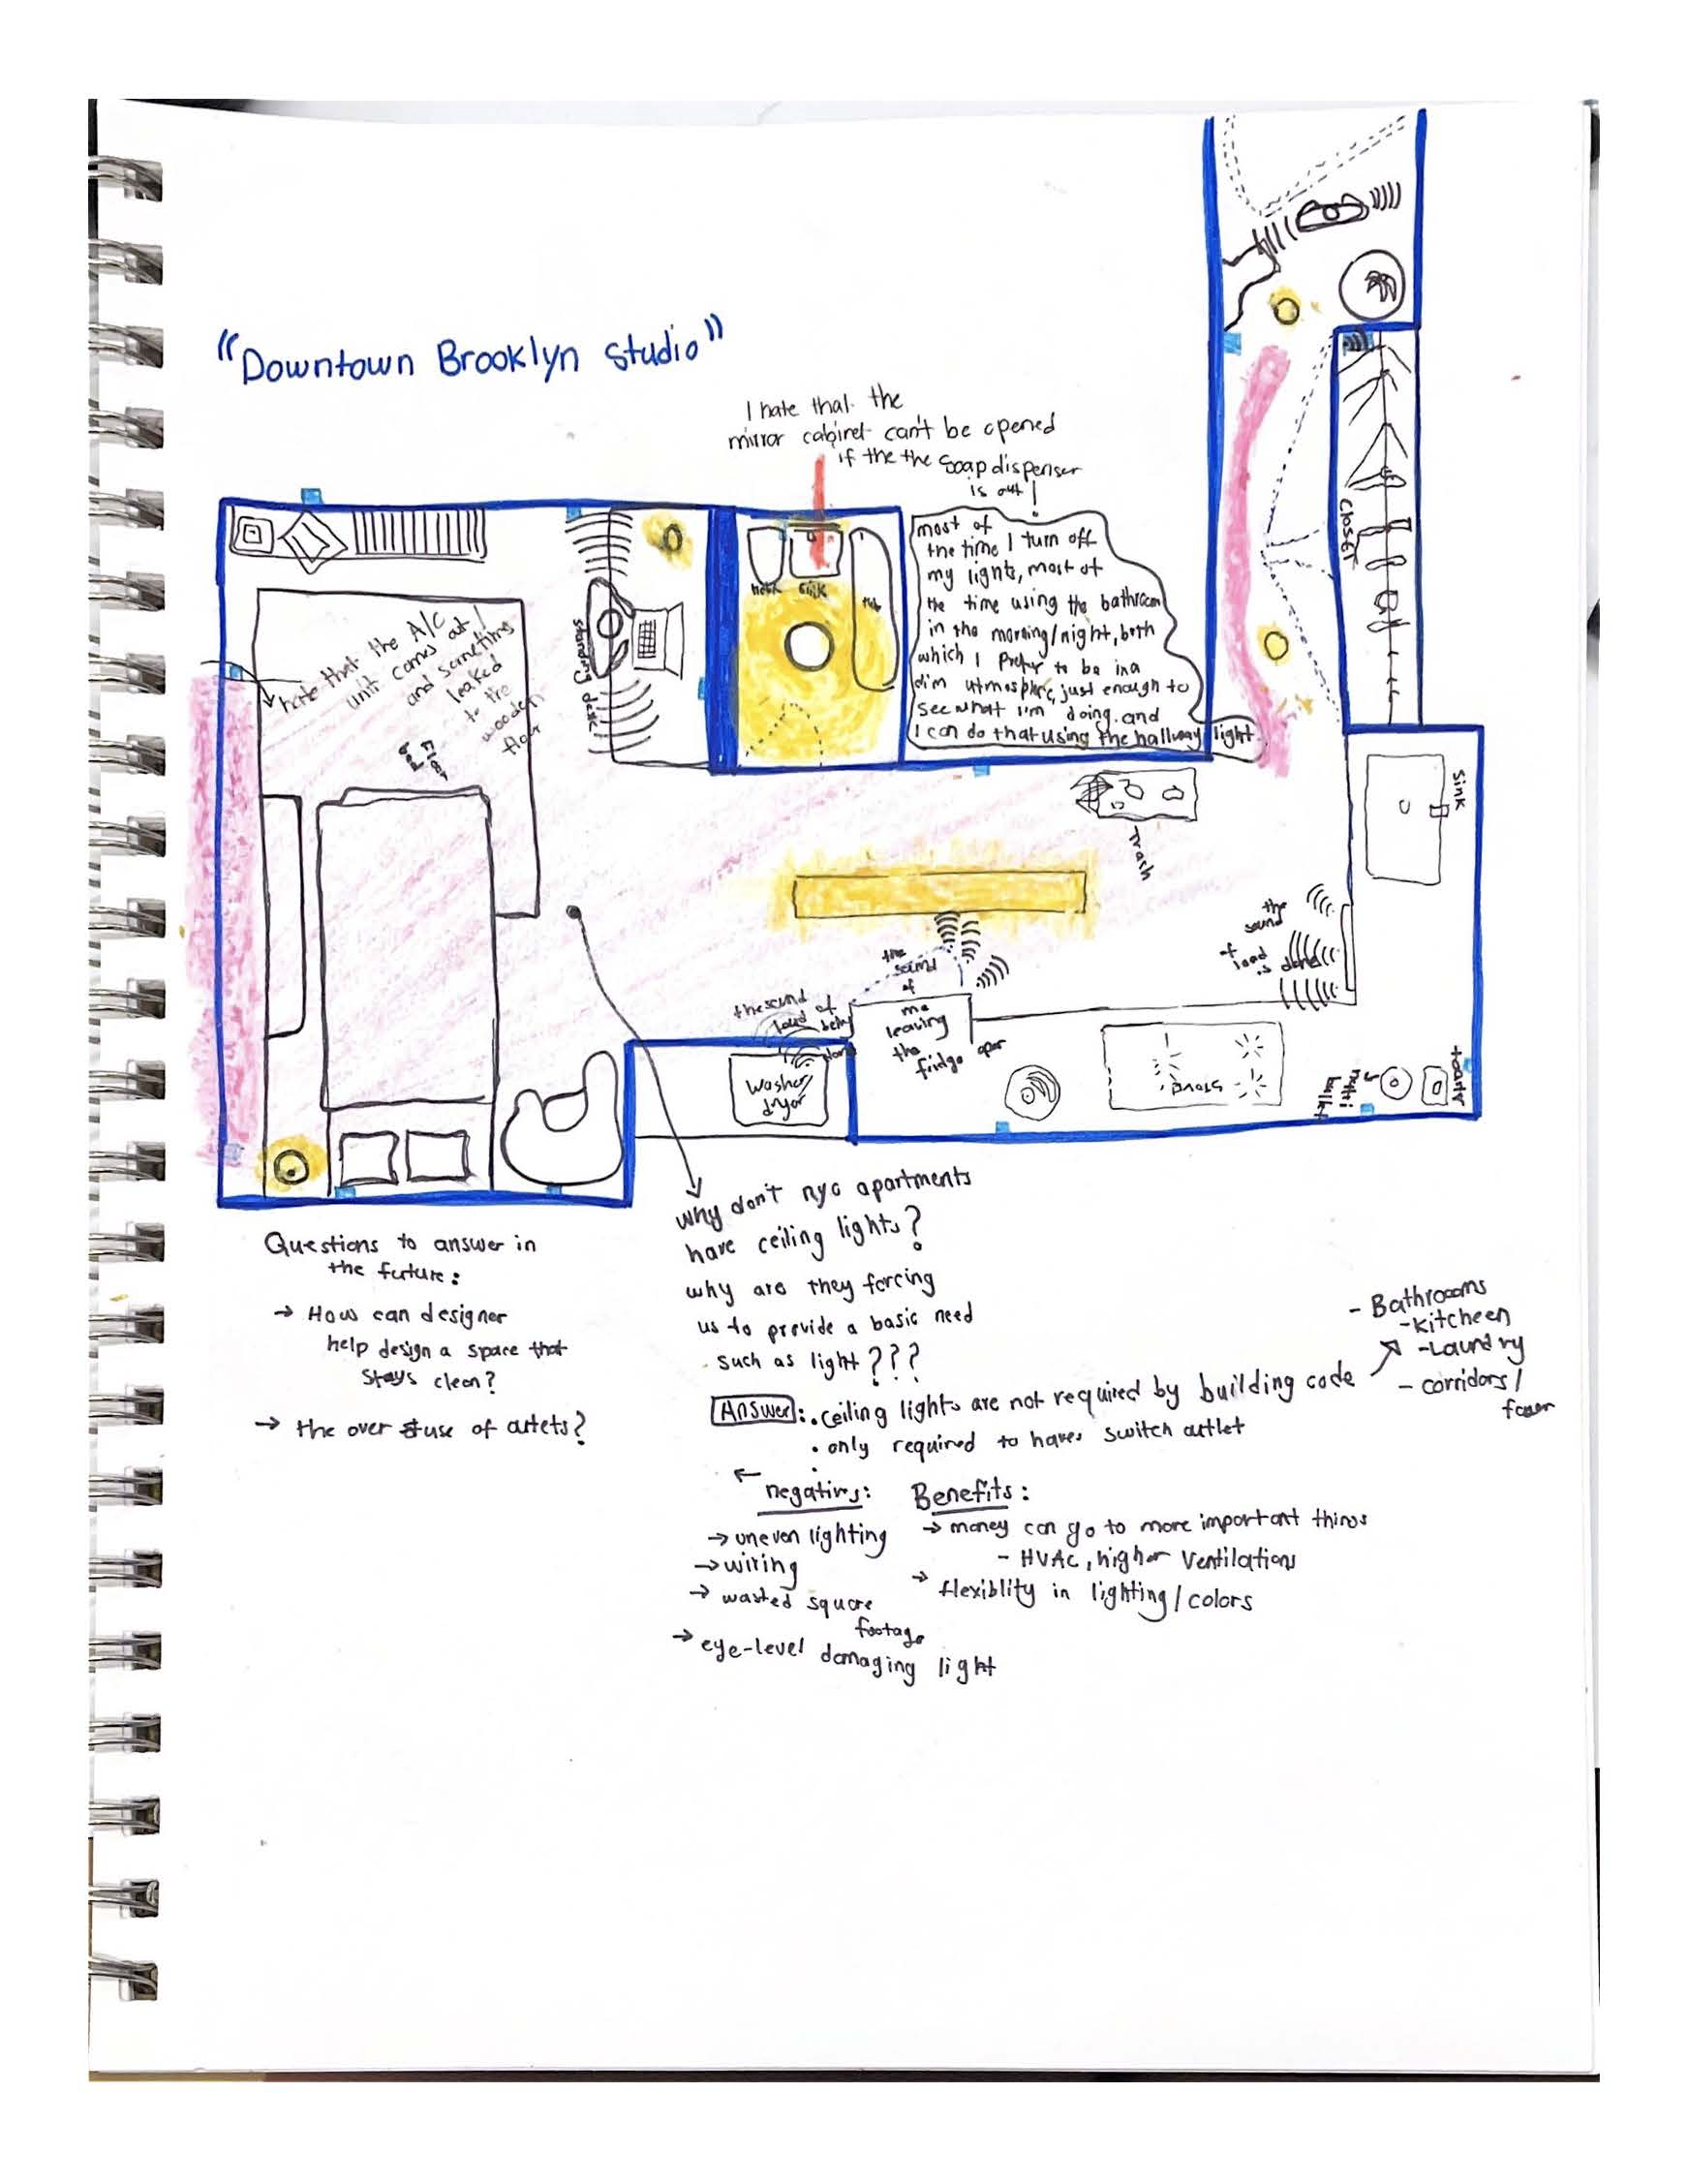 "Downtown Brooklyn Studio"
I hate that the
mirror cabinet can't be opened
if the the soap dispenser
is out!
most of
the time I turn off
my lights, most of
the time using the bathroom
in the morning/night, both
which I prefer to be in a
dim atmosphere, just enough to
see what I'm doing. and
I can do that using the hallway light
sink
tub
closet
hate that the A/C
unit comes out/
and sometims
leaked
to the
wooden
floor
standing desk
Floor
bed
Sink
Trash
the
sound
of
load
is done
the
sound
of
me
leaving
the
fridge open
the sound of
load being
done
Washer/
dryer
Stove
toaster
why don't nyc apartments
have ceiling lights?
why are they forcing
us to provide a basic need
such as light???
Questions to answer in
the future:
→ How can designer
help design a space that
stays clean?
→ the over use of outlets?
Answer: • ceiling lights are not required by building code
• only required to have switch outlet
- Bathrooms
- kitcheen
- Laundry
- corridors/
foyer
negatives:
→ uneven lighting
→ wiring
→ wasted square
footage
→ eye-level damaging light
Benefits:
→ money can go to more important things
- HVAC, higher Ventilations
→ flexiblity in lighting/colors